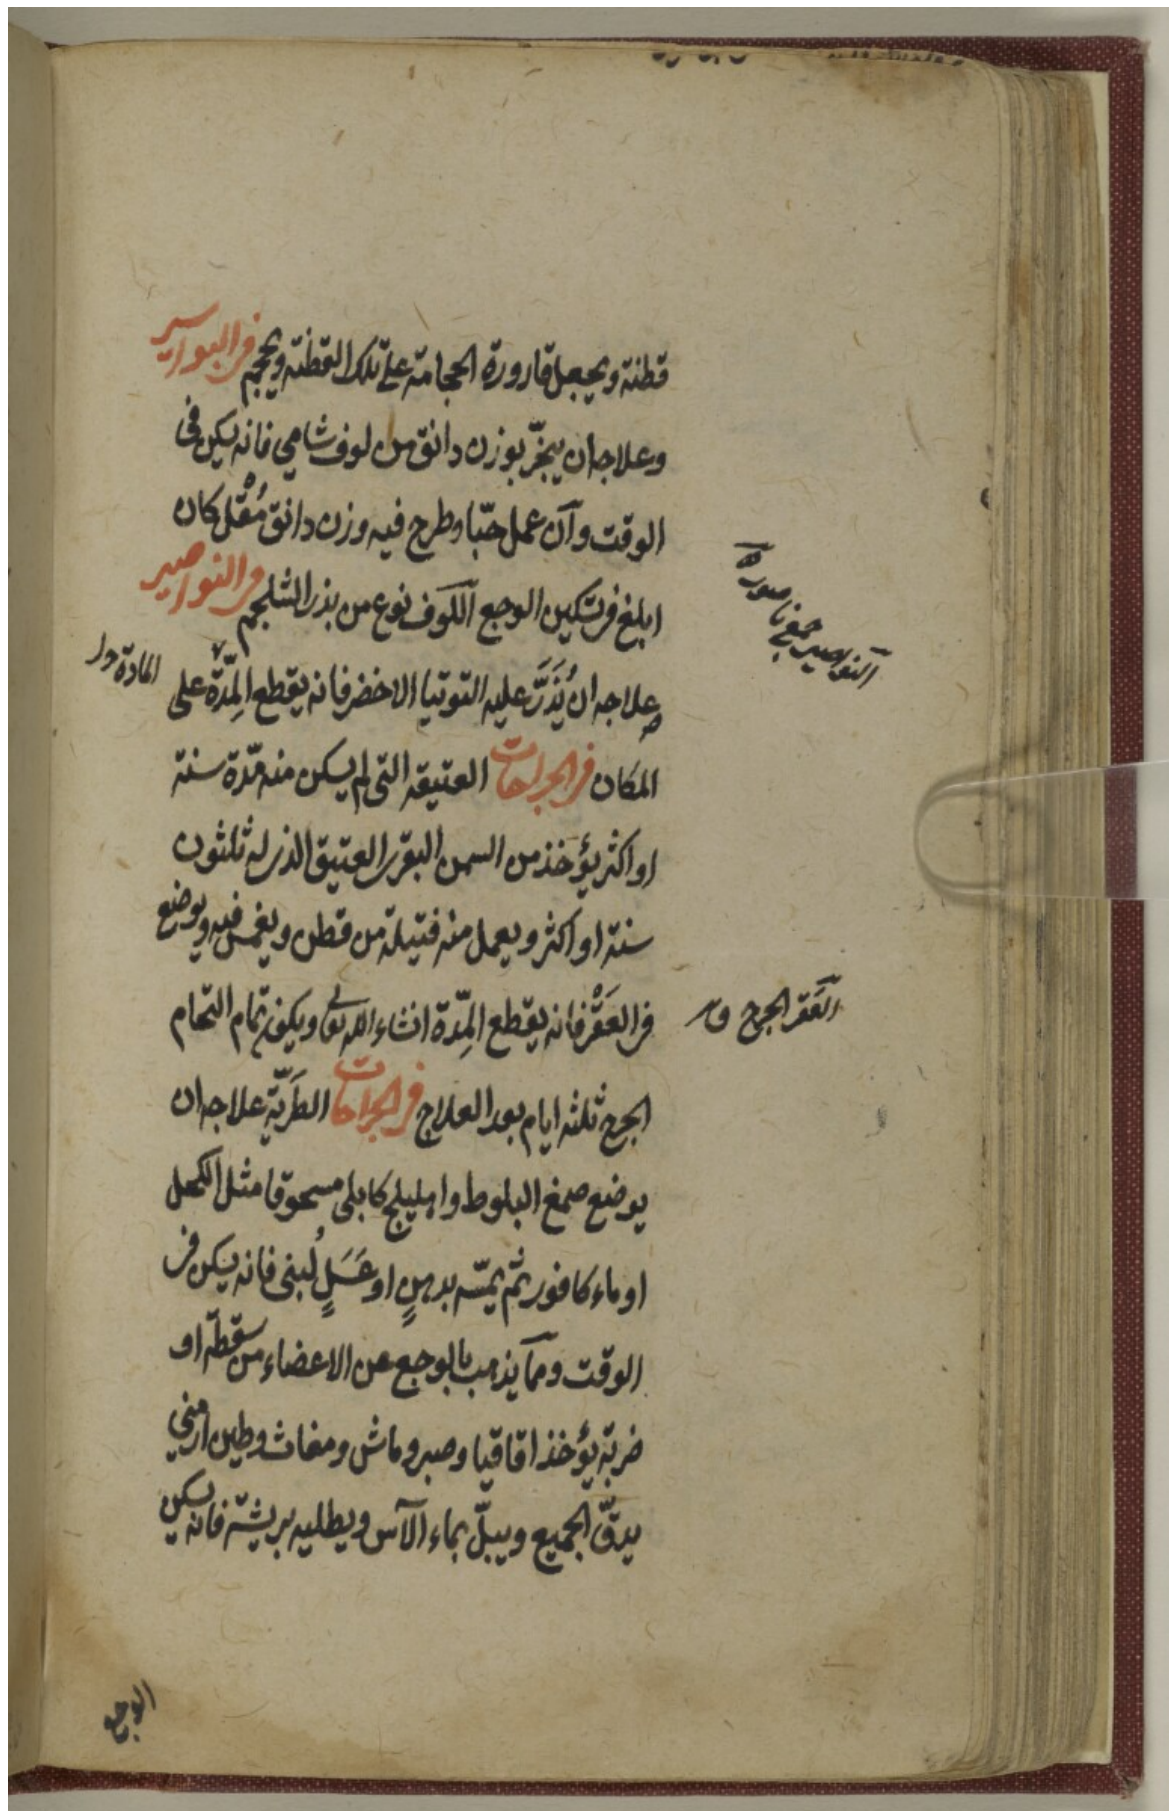 قطنة ويجعل قارورة الحجامة على تلك القطنة ويحجم في البواسير
وعلاجه ان يبخّر بوزن دانق من لوف شامي فانه يسكن في
الوقت وآن عمل حبّا وطرح فيه وزن دانق مُقْل كان
ابلغ في تسكين الوجع اللّوف نوع من بذر الشلجم في النواصير
علاجه ان يُذَرَّ عليه التوتيا الاخضر فانه يقطع المِدّة على
المكان في الجراحات العتيقه التي لم يسكن منه مدّة سنة
او اكثر يؤخذ من السمن البقري العتيق الذي له ثلثون
سنة او اكثر ويعمل منه فتيلة من قطن ويغمس فيه ويوضع
في العَقْر فانه يقطع المِدّة انشاء الله تعالى ويكون تمام التحام
الجرح ثلثه ايام بعد العلاج في الجراحات الطَريّة علاجه ان
يوضع صمغ البلوط واهليلج كابلي مسحوقا مثل الكحل
او ماء كافور ثم يمسّه بدهنٍ او عَسَلٍ لُبنى فانه يسكن في
الوقت وممّا يذهب بالوجع عن الاعضاء من سقطة او
ضربة يؤخذ اقاقيا وصبر وماش ومغاث وطين ارمني
يدقّ الجميع ويبلّ بماء الآس ويطليه بريشة فانه يسكن
النواصير جمع ناصورة
المادة
العَقر الجرح
الوجع